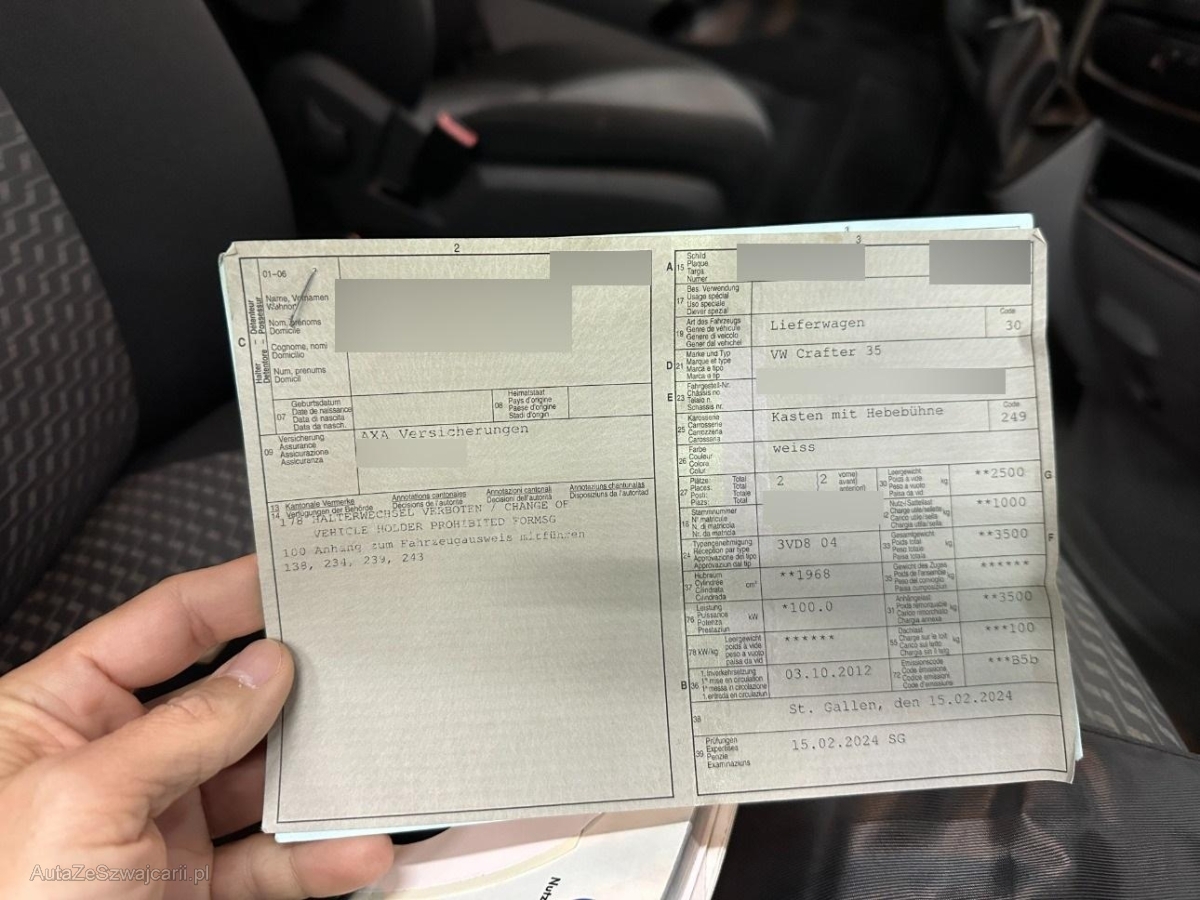 2
01-06
Name, Vornamen
Wohnort
Nom, prénoms
Domicile
Cognome, nomi
Domicilio
Num, prenums
Domicil
C
Halter – Détenteur
Detentore – Possessur
07
Geburtsdatum
Date de naissance
Data di nascita
Data da nasch.
08
Heimatstaat
Pays d'origine
Paese d'origine
Stadi d'origin
09
Versicherung
Assurance
Assicurazione
Assicuranza
AXA Versicherungen
13 Kantonale Vermerke
14 Verfügungen der Behörde
Annotations cantonales
Décisions de l'autorité
Annotazioni cantonali
Decisioni dell'autorità
Annotaziuns chantunalas
Disposiziuns da l'autoritad
178 HALTERWECHSEL VERBOTEN / CHANGE OF
VEHICLE HOLDER PROHIBITED FORMSG
100 Anhang zum Fahrzeugausweis mitführen
138, 234, 239, 243
1
3
A 15
Schild
Plaque
Targa
Numer
17
Bes. Verwendung
Usage spécial
Uso speciale
Diever spezial
19
Art des Fahrzeugs
Genre de véhicule
Genere di veicolo
Gener dal vehichel
Lieferwagen
Code
30
D 21
Marke und Typ
Marque et type
Marca e tipo
Marca e tip
VW Crafter 35
E 23
Fahrgestell-Nr.
Châssis no
Telaio n.
Schassis nr.
25
Karosserie
Carrosserie
Carrozzeria
Carossaria
Kasten mit Hebebühne
Code
249
26
Farbe
Couleur
Colore
Colur
weiss
27
Plätze: Total
Places: Total
Posti: Totale
Plazs: Total
2
2
vorne)
avant)
anteriori)
30
Leergewicht
Poids à vide
Peso a vuoto
Paisa da vid
kg
**2500
G
18
Stammnummer
N° matricule
N. di matricola
Nr. da matricla
32
Nutz-/ Sattellast
Charge utile/sellette
Carico utile/sella
Chargia utila/sella
kg
**1000
24
Typengenehmigung
Réception par type
Approvazione del tipo
Approvaziun dal tip
3VD8 04
33
Gesamtgewicht
Poids total
Peso totale
Paisa totala
kg
**3500
F
37
Hubraum
Cylindrée
Cilindrata
Cilindrada
cm³
**1968
35
Gewicht des Zuges
Poids de l'ensemble
Peso del convoglio
Paisa cumposiziun
kg
******
76
Leistung
Puissance
Potenza
Prestaziun
kW
*100.0
31
Anhängelast
Poids remorquable
Carico rimorchiato
Chargia annexa
kg
**3500
78 kW/kg
Leergewicht
poids à vide
peso a vuoto
paisa da vid
******
55
Dachlast
Charge sur le toit
Carico sul tetto
Chargia sin il tetg
kg
***100
B 36
1. Inverkehrsetzung
1re mise en circulation
1a messa in circolazione
1. entrada en circulaziun
03.10.2012
72
Emissionscode
Code émissions
Codice emissioni
Code d'emissiuns
***B5b
38
St. Gallen, den 15.02.2024
39
Prüfungen
Expertises
Perizie
Examinaziuns
15.02.2024 SG
AutaZeSzwajcarii.pl